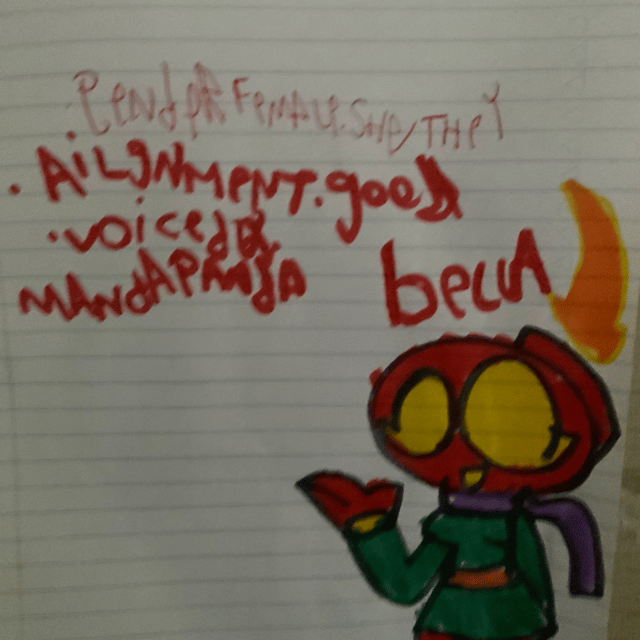 GENdER FEMALE. SHE/THEY
• AiLgNMENT. good
• VOiCEd By.
MANdAPANdA
beccA